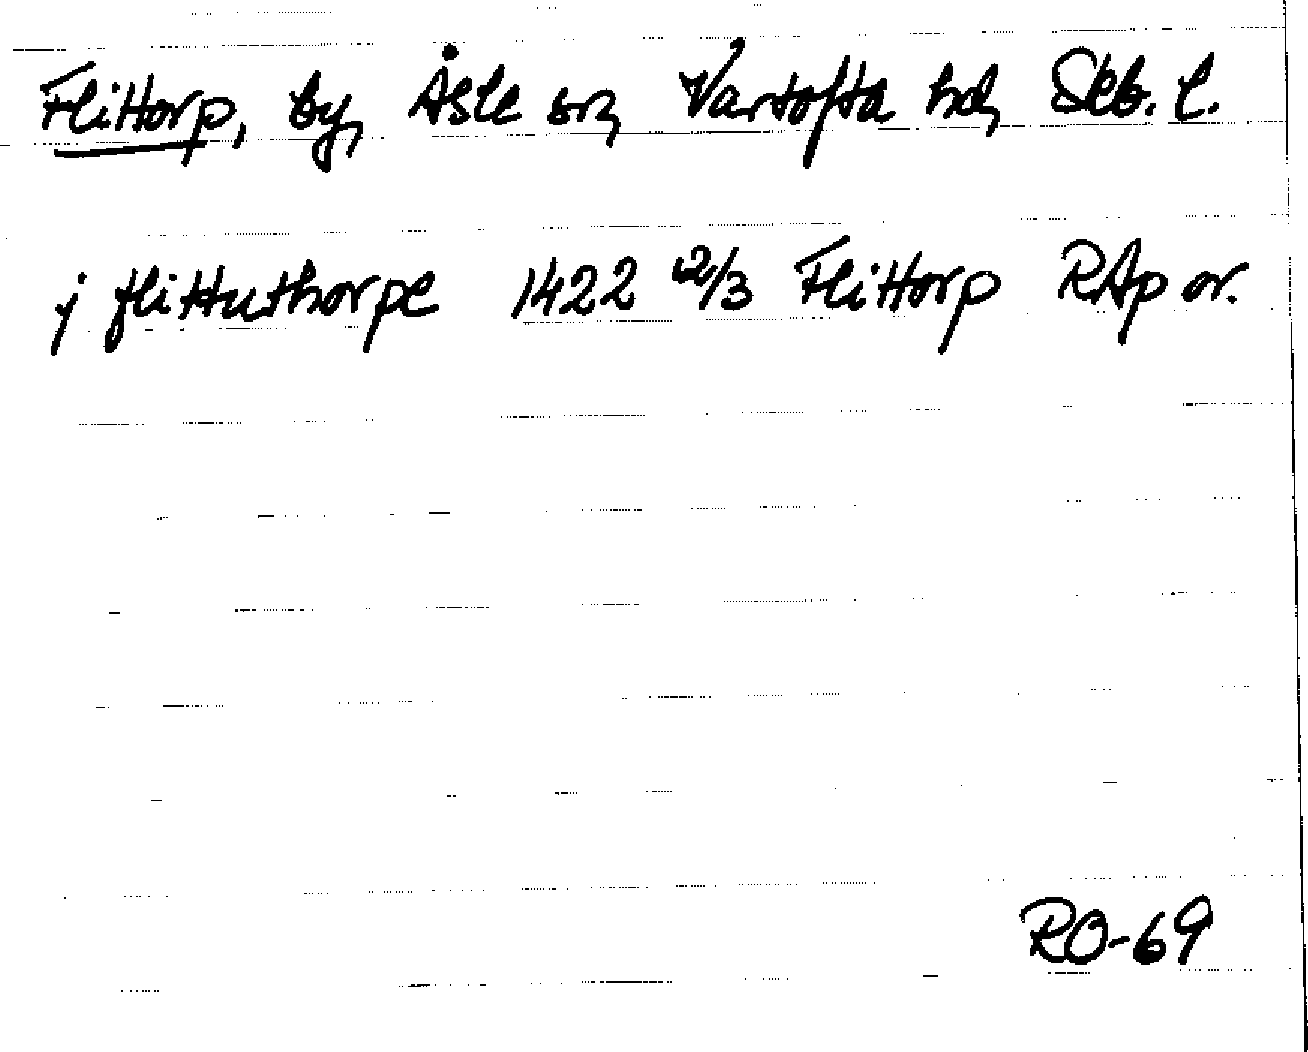 Flittorp, by, Åsle sn, Vartofta hd, Skb. l.
j flittuthorpe 1422 2/3 Flittorp RAp or.
RO-69